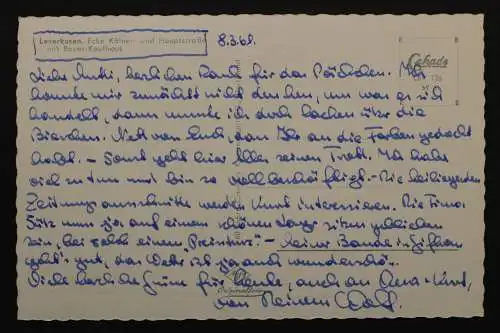 Leverkusen, Ecke Kölner- und Hauptstraße
mit Bayer-Kaufhaus
8.3.68.
Cekade
Liebe Mutti, herzlichen Dank für das Päckchen. Ich
konnte mir zunächst nicht denken, um was es sich
handelt, dann musste ich doch lachen über die
Bierchen. Nett von Euch, dass Ihr an die Farben gedacht
habt. – Sonst geht hier Alles seinen Trott. Ich habe
viel zu tun und bin so voll beschäftigt. – Die beiliegenden
Zeitungsausschnitte werden Kurt interessieren. Die Firma
nun ja auf einem schönen sitzen geblieben
sein, bei solch einem – Deiner
geht's gut, das Wetter ist ja auch wunderschön.
Viele herzliche Grüße für heute, auch an Kurt,
von Deinem